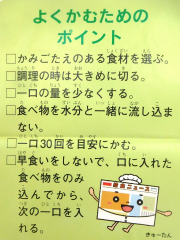 よくかむための
ポイント
□かみごたえのある食材を選ぶ。
□調理の時は大きめに切る。
□一口の量を少なくする。
□食べ物を水分と一緒に流し込ま
ない。
□一口30回を目安にかむ。
□早食いをしないで、口に入れた
食べ物をのみ
込んでから、
次の一口を入
れる。
きゅーたん